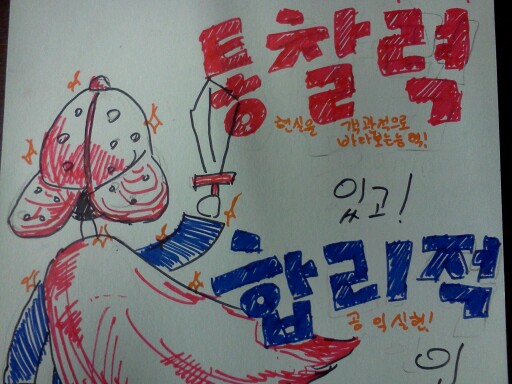 통찰력
현실을 객관적으로
바라보는 능력!
있고!
합리적
공익실현!